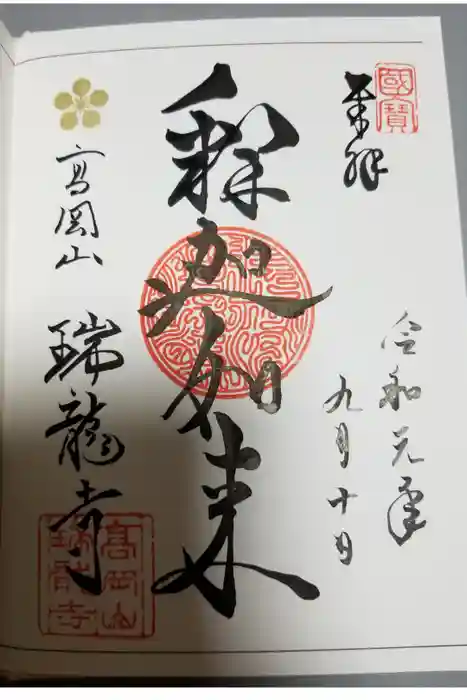 國寶
奉拝
令和元年
九月十日
釋迦如来
高岡山
瑞龍寺
高岡山
瑞龍寺